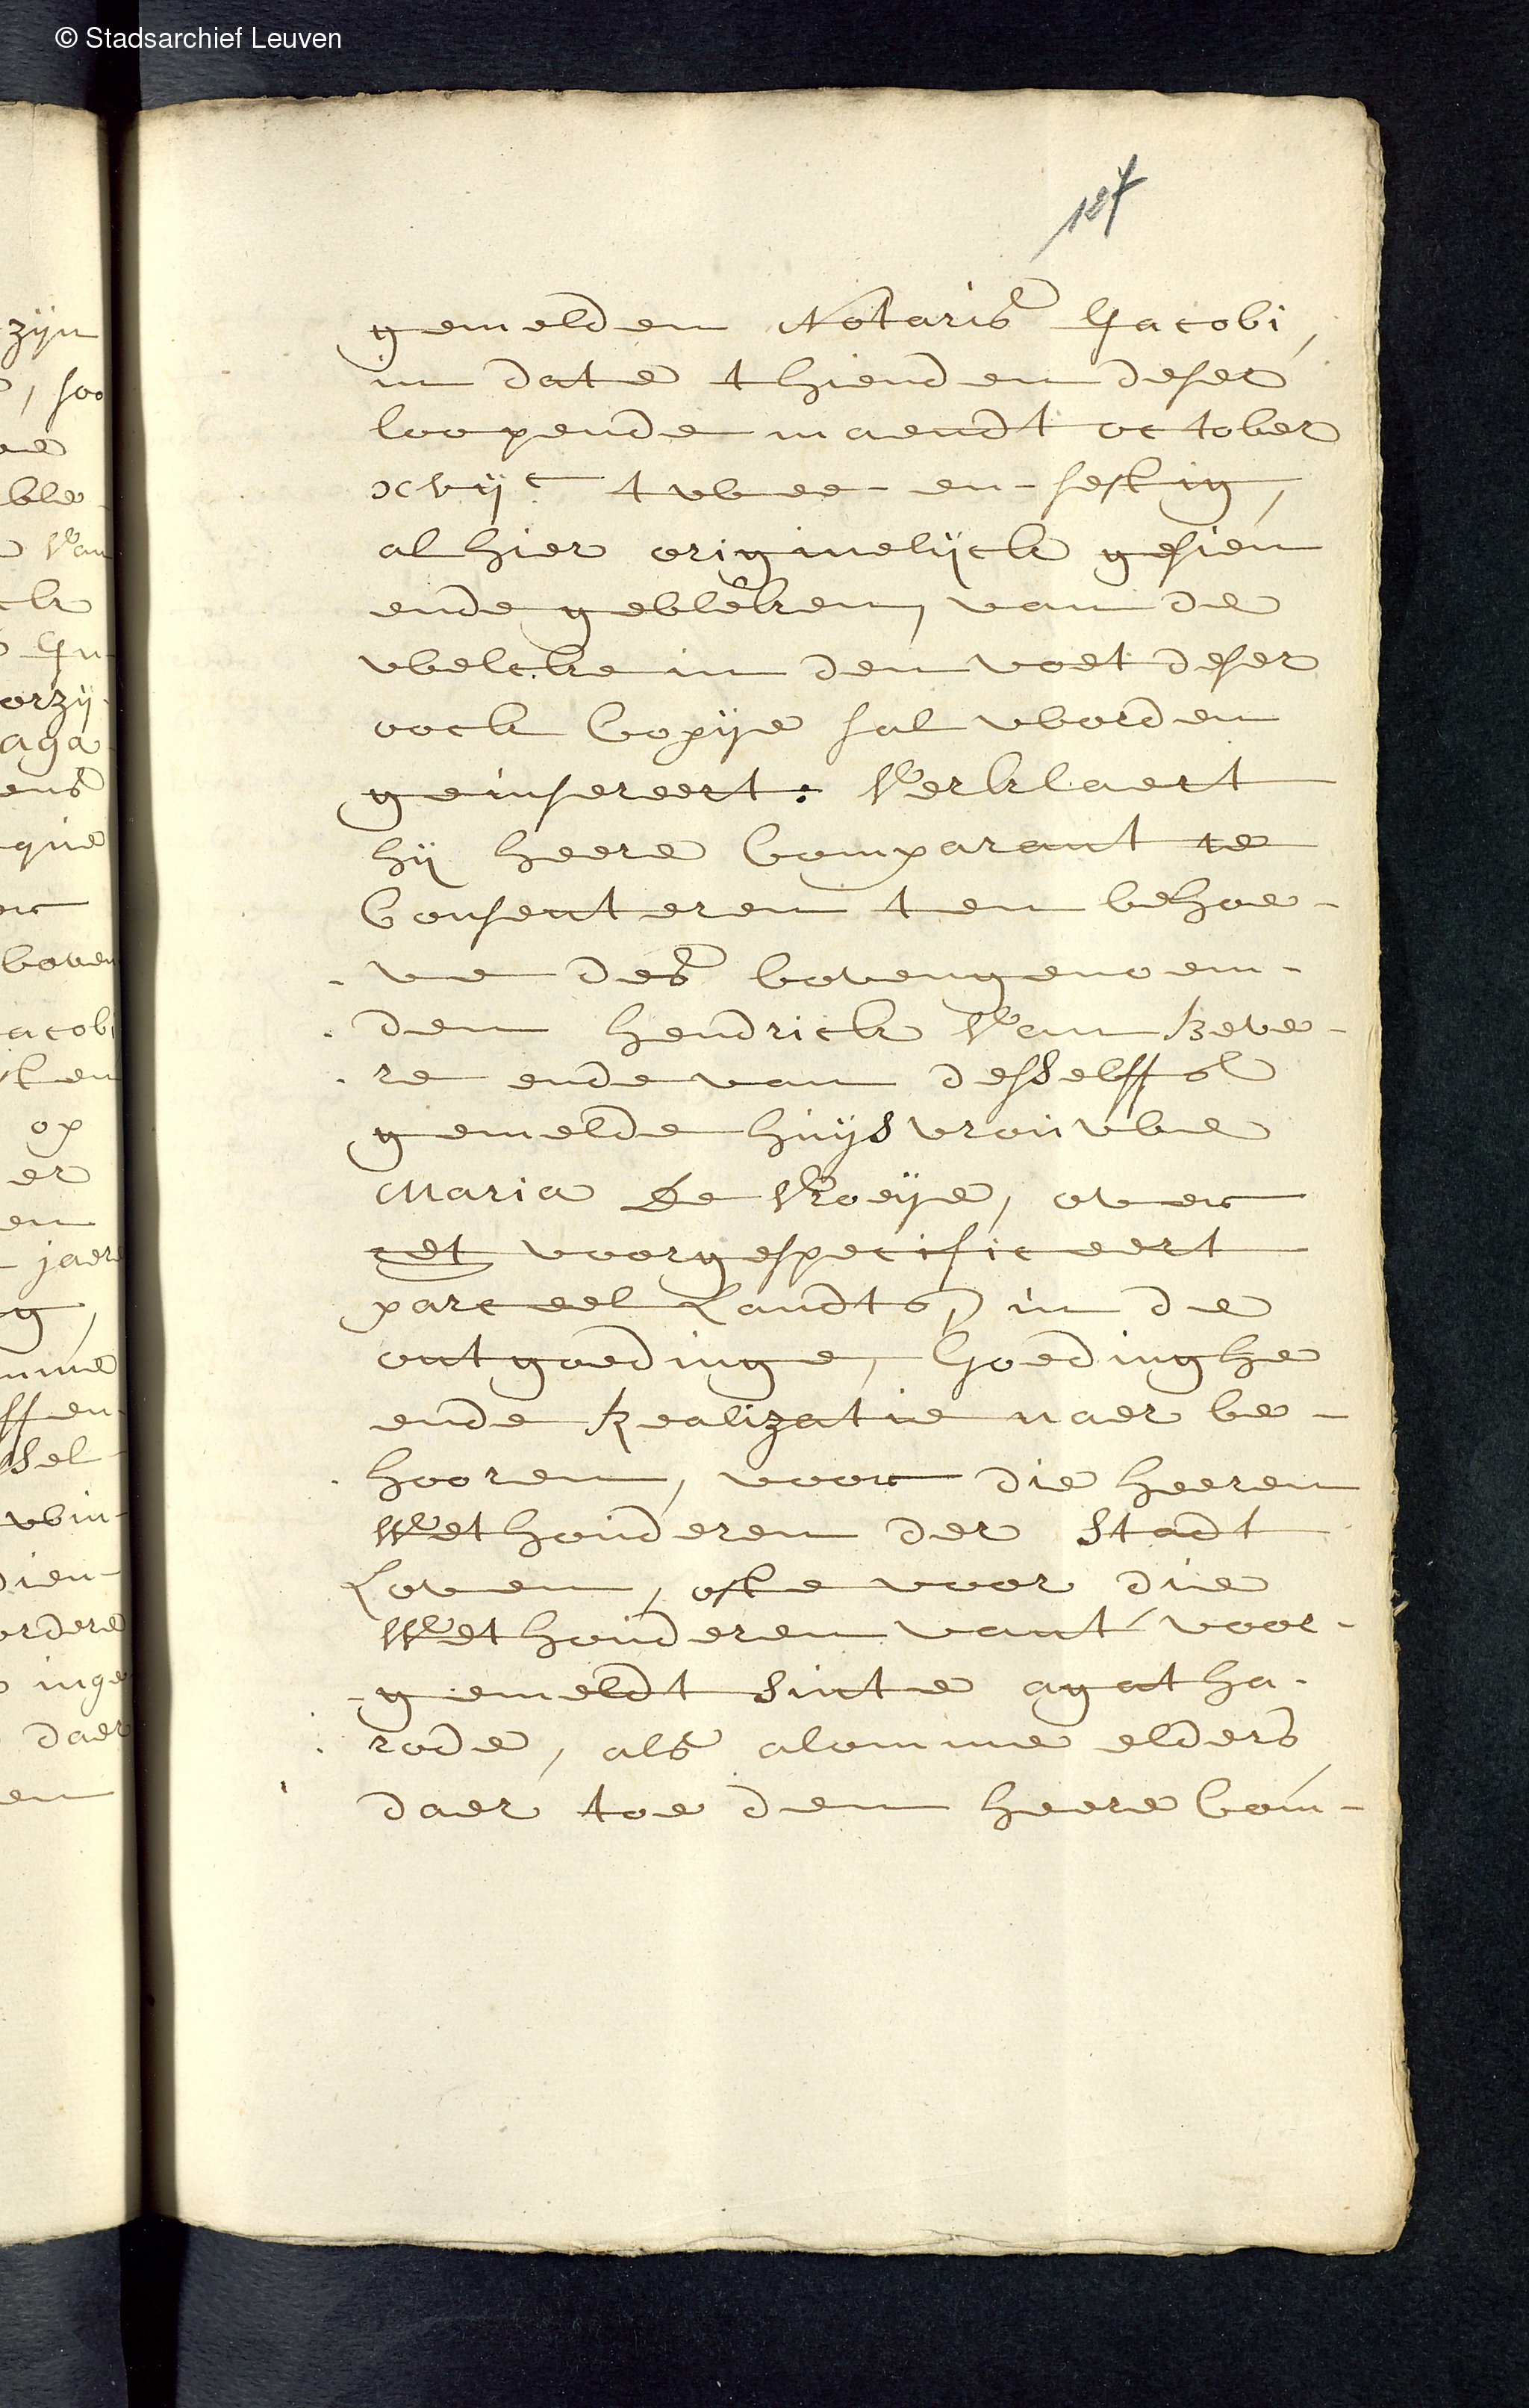 © Stadsarchief Leuven
gemelden Notaris Jacobi,
in date thienden deser
loopende maendt october
xvijc twee-en-sestig,
alhier originelijck gesien
ende geblêken, van de
welcke in den voet deser
oock Copije sal worden
geinsereert: Verklaert
hij heere Comparant te
Consenteren ten behoe-
-ve des bovengenoem-
den Hendrick Van Reve-
re ende van desselffs
gemelde huijsvrouwe
Maria De Vroeije, over
het voorgespecificeert
parceel Landts, in de
ontgoedinge, Goedinghe
ende Realizatie naer be-
hooren, voor die heeren
Wethouderen der Stadt
Loven, ofte voor die
Wethouderen vant voor-
-gemeldt Sinte agatha-
rode, als alomme elders,
daer toe den heere Com-
zijn
, soo
ble-
Van
orzij-
aga-
ens
que
boven
acobi
op
er
en
jaer
g,
ffen-
sel-
win-
dien-
ordere
inge
daer
en